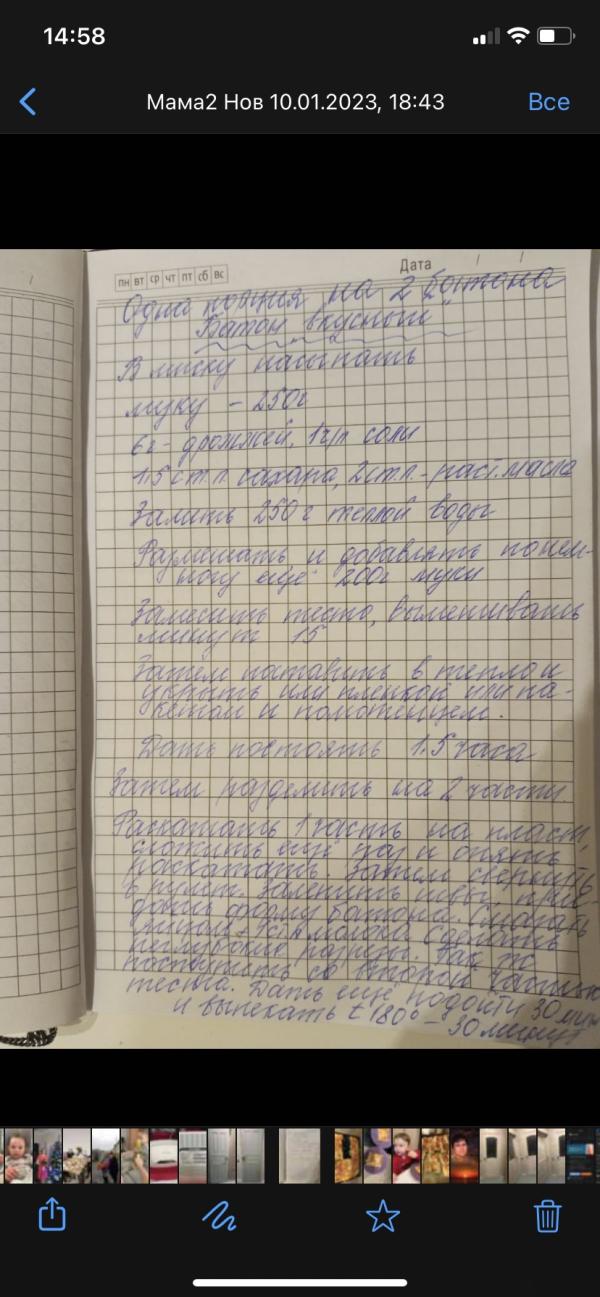 14:58
Мама2 Нов 10.01.2023, 18:43
Все
пн вт ср чт пт сб вс
Дата
Одна порция на 2 батона
"Батон вкусный"
В миску насыпать
муку - 250г
6г - дрожжей, 1ч/л соли
1.5 ст.л. сахара, 2 ст.л. - раст. масла
Залить 250 г теплой воды
Размешать и добавлять понем-
ногу еще 200г муки
Замесить тесто, вымешивать
минут 15
Затем поставить в тепло и
укрыть или пленкой или па-
кетом и полотенцем.
Дать постоять 1.5 часа
Затем разделить на 2 части.
Раскатать 1 часть на пласт,
сложить ещё раз и опять
раскатать. Затем свернуть
в рулет. Залепить швы, при-
дать форму батона. Смазать
1ст.л молока Сделать
неглубокие разрезы. Так ж
поступить со второй частью
теста. Дать ещё подойти 30 мин
и выпекать t 180° - 30 минут